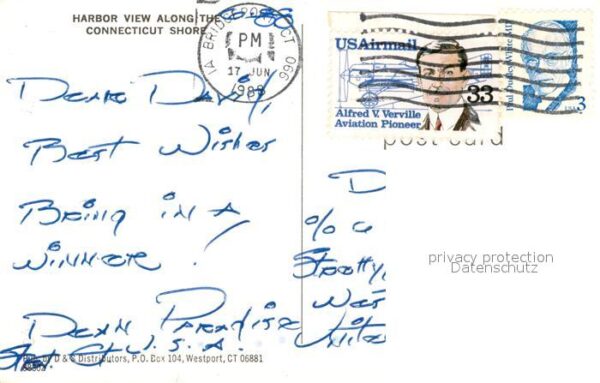 HARBOR VIEW ALONG THE
CONNECTICUT SHORE
6-88
BRIDGEPORT CT 066
PM
17 JUN
1988
USAirmail
33
Alfred V. Verville
Aviation Pioneer
Paul Dudley White MD
USA
3
post card
Dear David,
Best Wishes
Being in A
Winner!
Dean Paradise
U.S.A.
D
%
privacy protection
Datenschutz
Pub. by D & S Distributors, P.O. Box 104, Westport, CT 06881